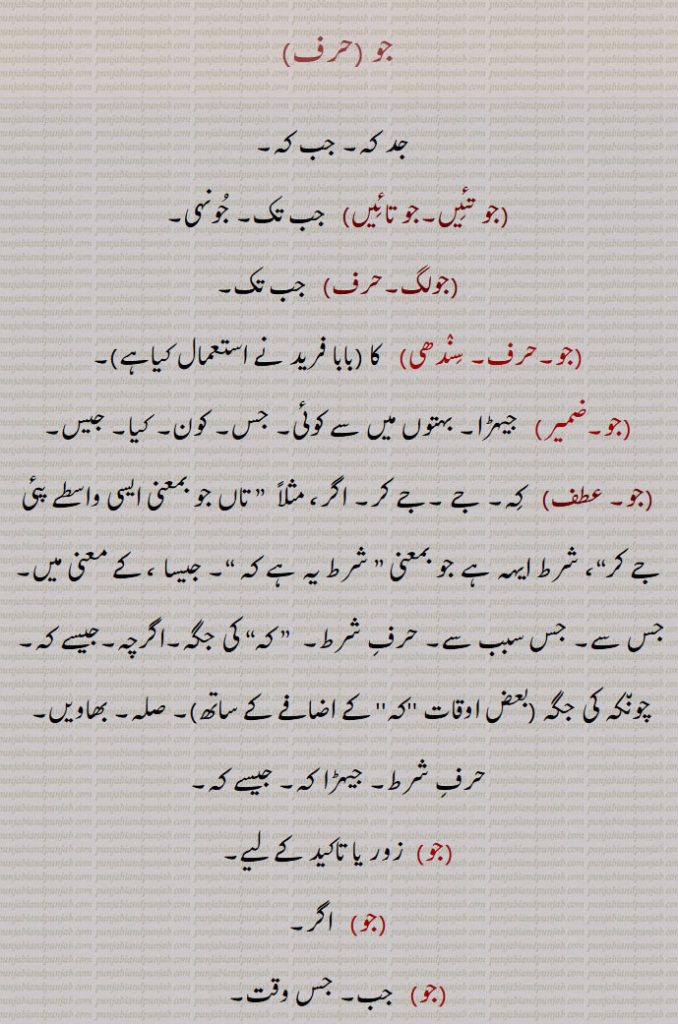 جو (حرف)
جد کہ۔ جب کہ۔
(جو تئِیں۔جو تائِیں) جب تک۔ جُونہی۔
(جولگ۔حرف) جب تک۔
(جو۔حرف۔ سِنْدھی) کا (بابا فرید نے استعمال کیاہے)۔
(جو۔ضمیر) جیہڑا۔ بہتوں میں سے کوئی۔ جس۔ کون۔ کیا۔ جیس۔
(جو۔ عطف) کِہ۔ جے ۔جے کر۔ اگر، مثلاً ”تاں جو بمعنی ایسی واسطے پئی
جے کر“، شرط ایہہ ہے جو بمعنی ”شرط یہ ہے کہ“۔ جیسا ،کے معنی میں۔
جس سے۔ جس سبب سے۔ حرفِ شرط۔ ”کہ“ کی جگہ۔اگرچہ۔جیسے کہ۔
چونّکہ کی جگہ (بعض اوقات "کہ" کے اضافے کے ساتھ)۔ صلہ۔ بھاویں۔
حرفِ شرط۔ جیہڑا کہ۔ جیسے کہ۔
(جو) زور یا تاکید کے لیے۔
(جو) اگر۔
(جو) جب۔ جس وقت۔